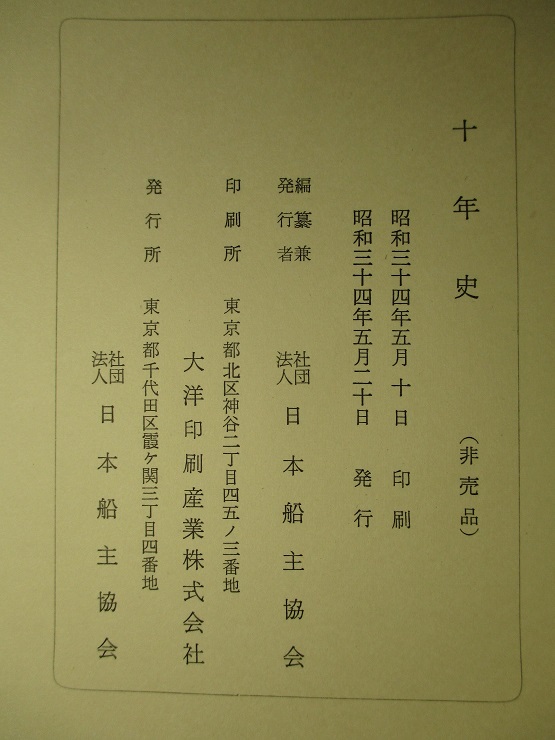 十年史 (非売品)
昭和三十四年五月十日 印刷
昭和三十四年五月二十日 発行
編纂兼発行者 社団法人 日本船主協会
印刷所 東京都北区神谷二丁目四五ノ三番地
大洋印刷産業株式会社
発行所 東京都千代田区霞ケ関三丁目四番地
社団法人 日本船主協会